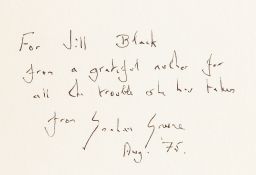 For Jill Black
from a grateful author for
all the trouble she has taken
from Graham Greene
Aug. '75.